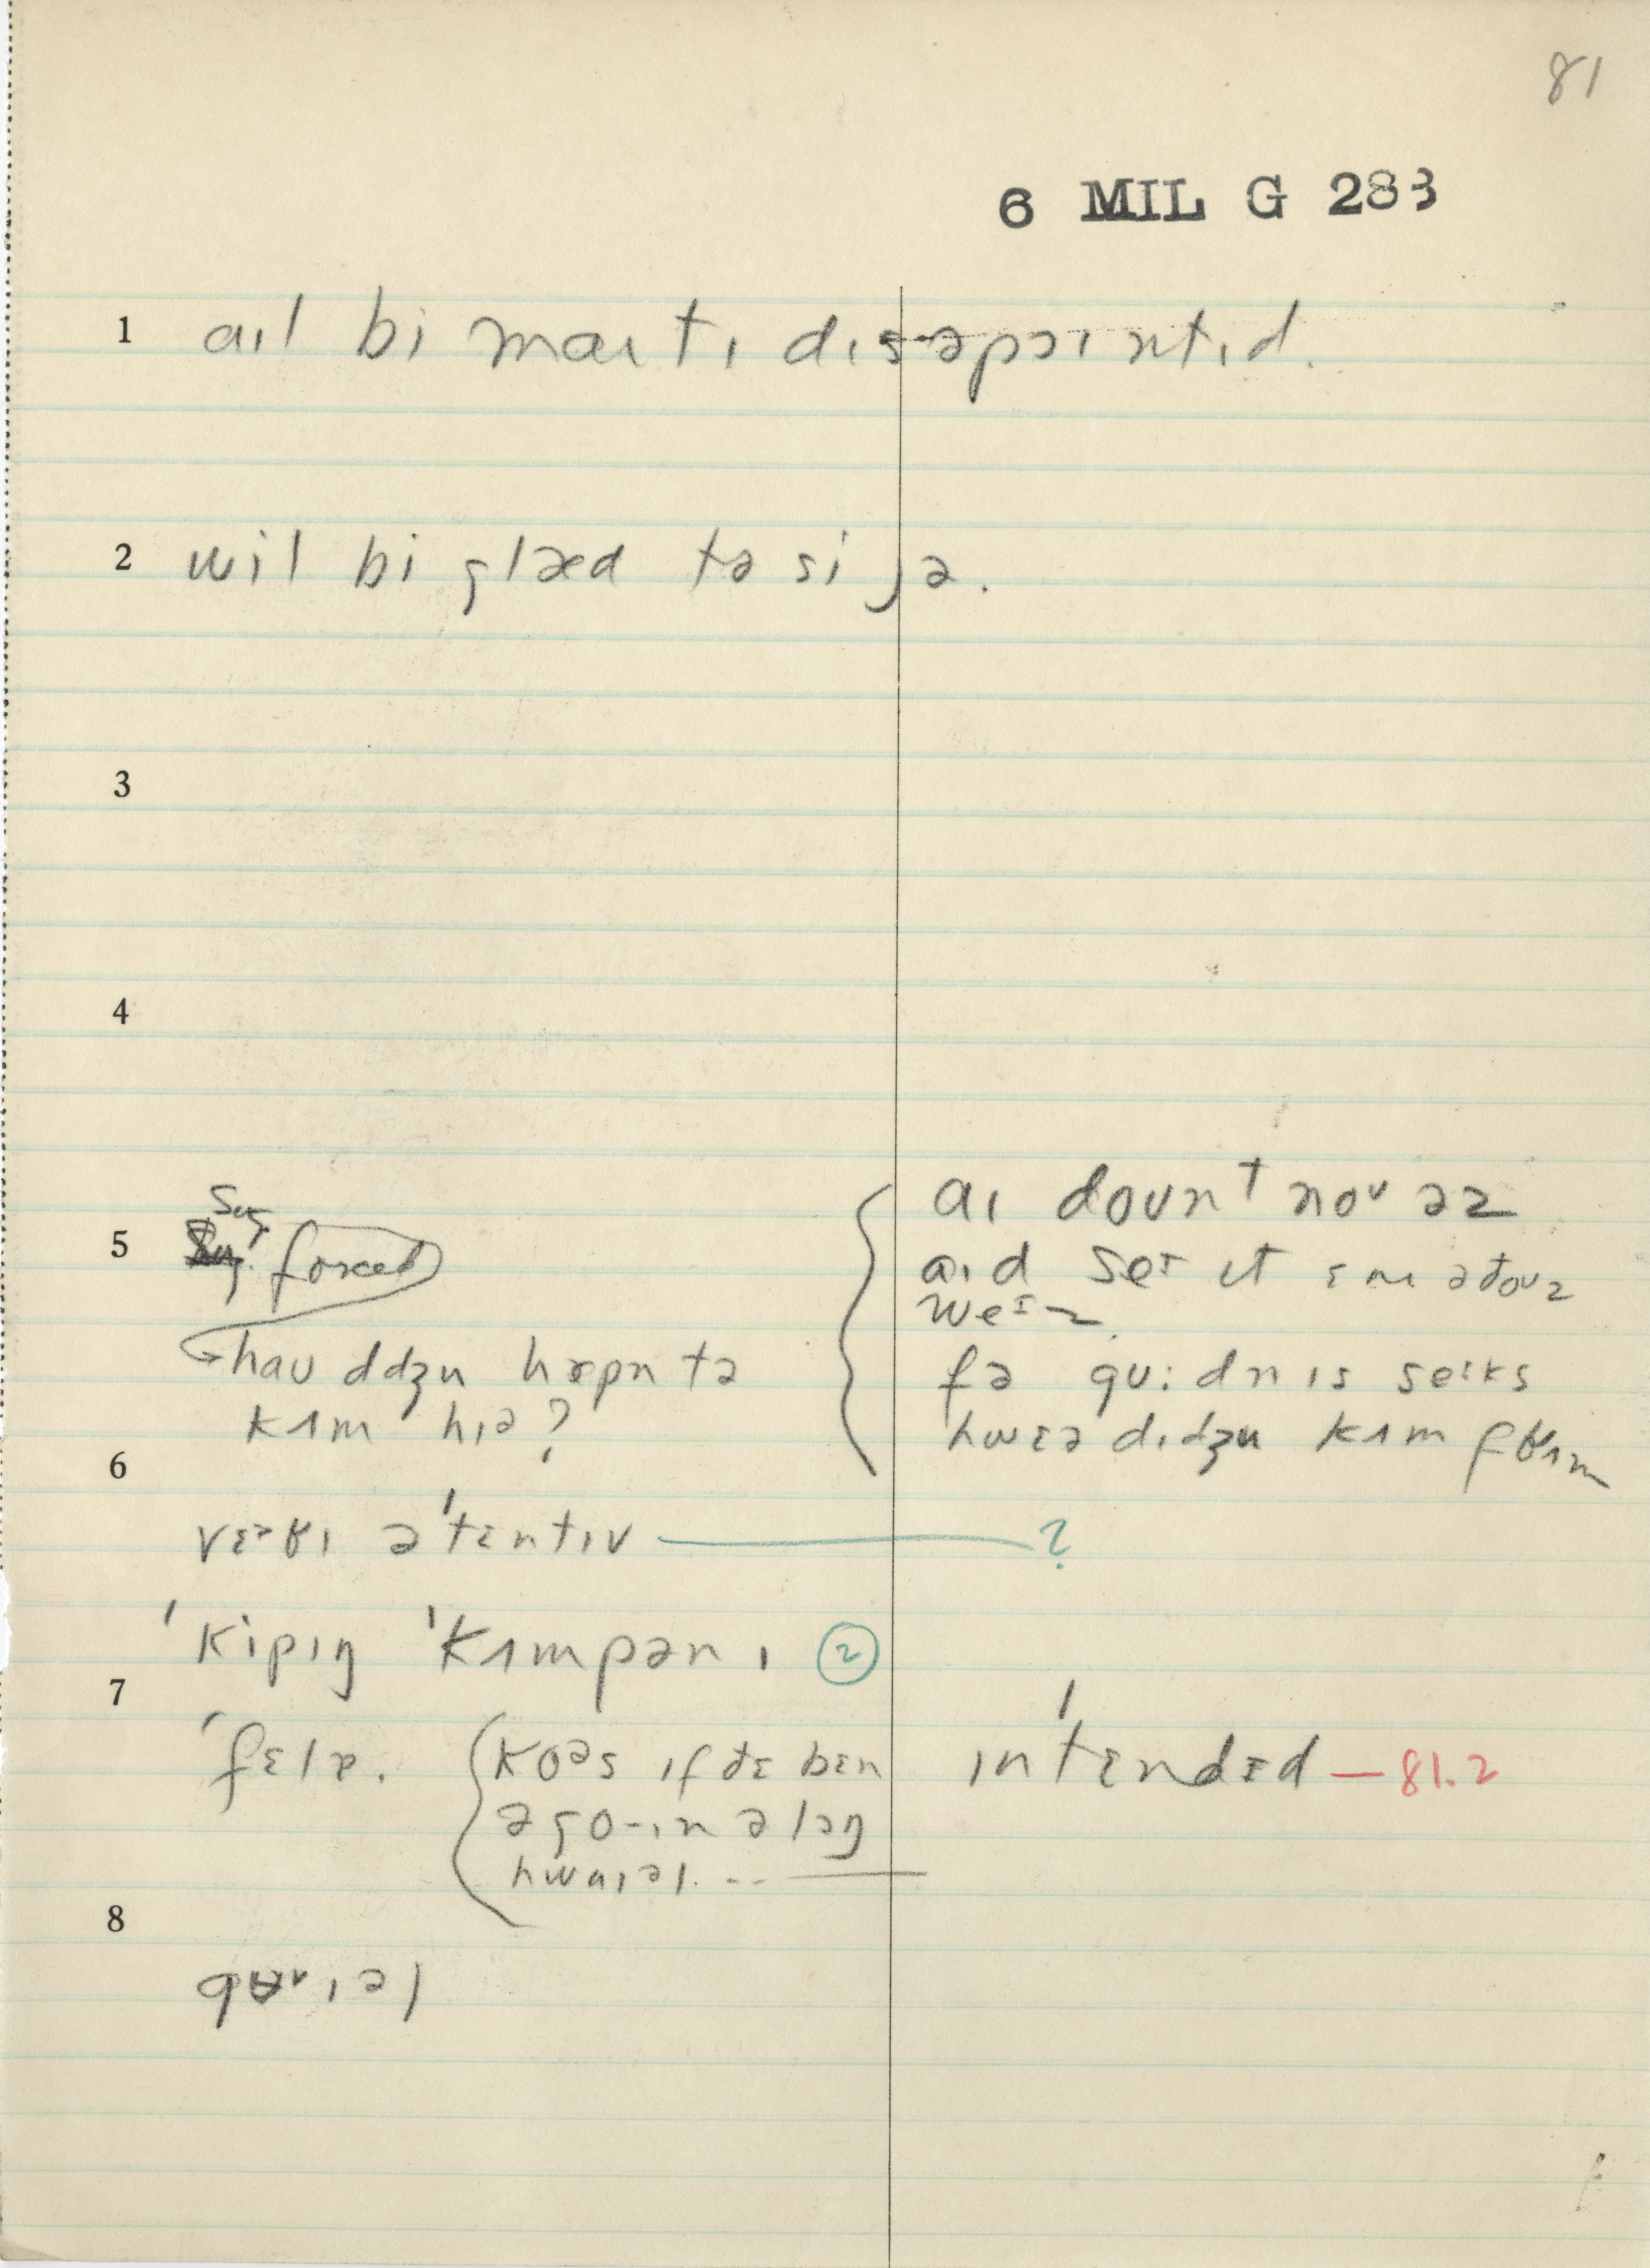 81
6 MIL G 283
1 aɪl bi maɪtɪ dɪsəpɔɪntɪd.
2 wil bi glæd tə si jə.
3
4
5 Sug. forced
haʊ ddʒu hæpn tə
kʌm hɪə?
aɪ doʊnt noʊ əz
aɪd seɪ ɪt ɛnɪ əðoʊz
weɪz
fə gʊ:dnɪs seɪks
hwɛə dɪdʒu kʌm fʁʌm
6
vɛəʁɪ ə'tɛntɪv — ?
'kipɪŋ 'kʌmpənɪ ②
7
'fɛlɚ.
koəs ɪf ðɛ bɛn
ə go-ɪn əlɔŋ
hwaɪəl. -- —
ɪn'tɛndɛd — 81.2
8